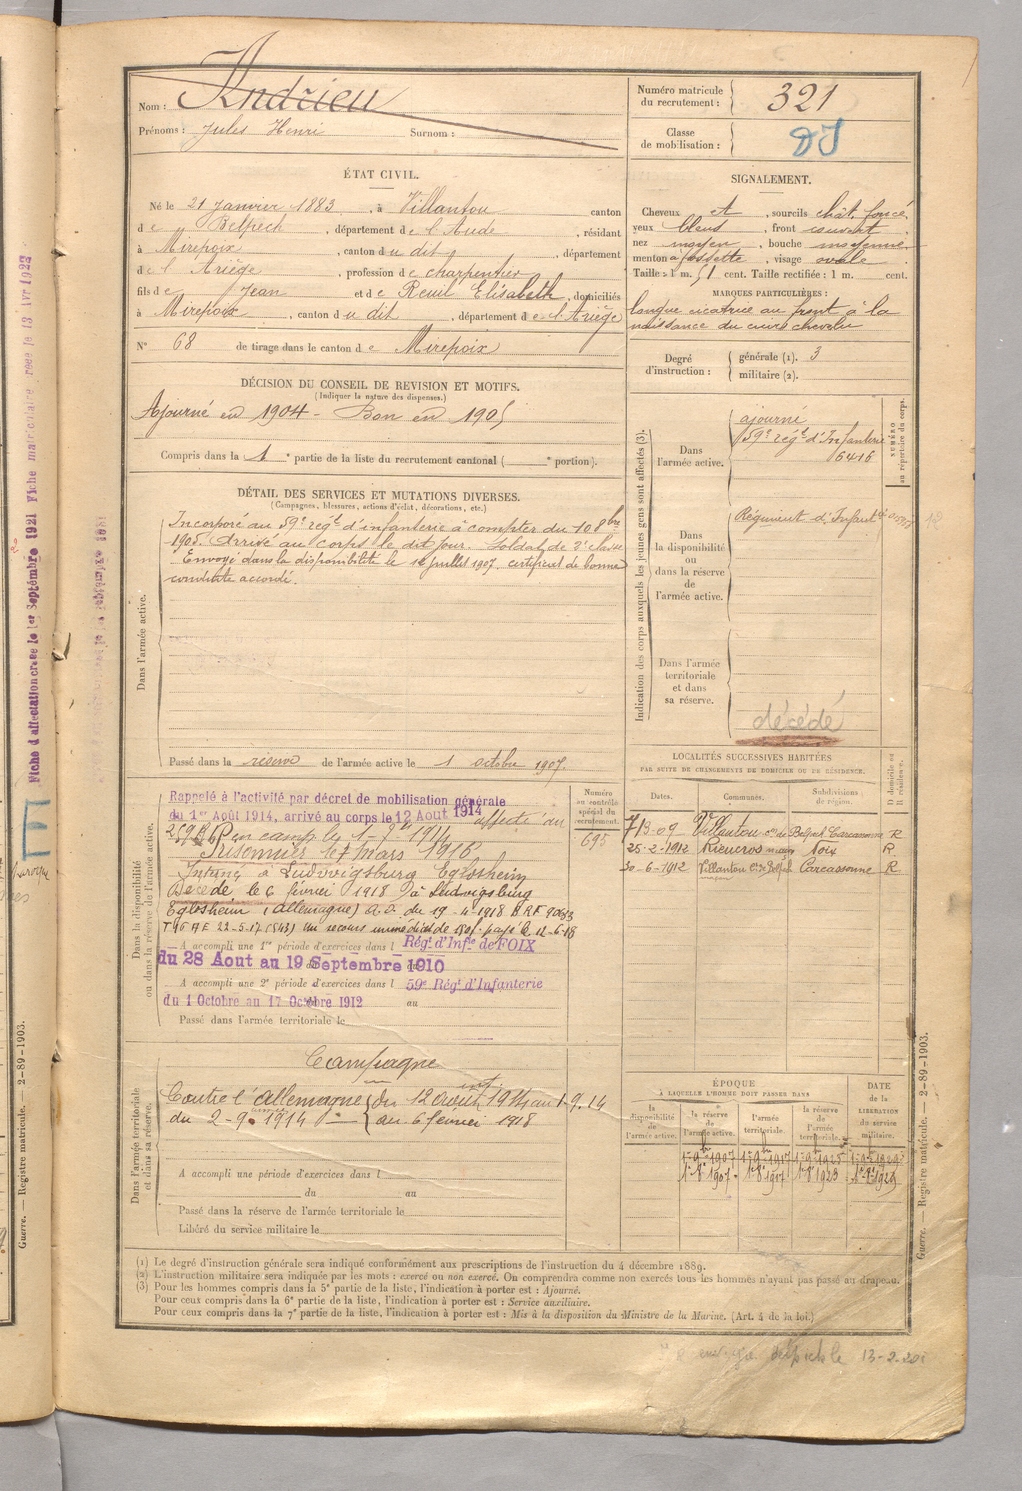 Nom : Andrieu
Prénoms : Jules Henri Surnom :
Numéro matricule du recrutement : 321
Classe de mobilisation :
ÉTAT CIVIL.
Né le 21 janvier 1883, à Villautou canton
de Belpech, département de l'Aude, résidant
à Mirepoix, canton du dit, département
de l'Ariège, profession de charpentier
fils de Jean et de Reuil Elisabeth, domiciliés
à Mirepoix, canton du dit, département de l'Ariège
N° 68 de tirage dans le canton de Mirepoix
SIGNALEMENT.
Cheveux et, sourcils chât. foncé,
yeux bleus, front couvert,
nez moyen, bouche moyenne,
menton à fossette, visage ovale.
Taille : 1 m. 51 cent. Taille rectifiée : 1 m. cent.
MARQUES PARTICULIÈRES :
longue cicatrice au front à la
naissance du cuir chevelu
Degré d'instruction : générale (1). 3
militaire (2).
DÉCISION DU CONSEIL DE REVISION ET MOTIFS.
(Indiquer la nature des dispenses.)
Ajourné en 1904 - Bon en 1905
Compris dans la 1e partie de la liste du recrutement cantonal ( e portion).
DÉTAIL DES SERVICES ET MUTATIONS DIVERSES.
(Campagnes, blessures, actions d'éclat, décorations, etc.)
Dans l'armée active.
Incorporé au 59e régt d'infanterie à compter du 10 8bre
1905. Arrivé au corps le dit jour. Soldat de 2e classe
Envoyé dans la disponibilité le juillet 1907. certificat de bonne
conduite accordé.
Passé dans la réserve de l'armée active le 1 octobre 1907.
Indication des corps auxquels les jeunes gens sont affectés (3).
NUMÉRO au répertoire du corps.
Dans l'armée active.
ajourné
59e régt d'Infanterie
6416
Dans la disponibilité ou dans la réserve de l'armée active.
Régiment d'Infant
Dans l'armée territoriale et dans sa réserve.
décédé
Dans la disponibilité ou dans la réserve de l'armée active.
Rappelé à l'activité par décret de mobilisation générale
du 1er Août 1914, arrivé au corps le 12 Aout 1914 affecté au
Prisonnier le 7 mars 1916
Interné à Ludwigsburg Eglosheim
Décédé le 6 février 1918 à Ludwigsburg
Eglosheim (Allemagne) du 19-4-1918
un secours immédiat de 150f. payé le 12-6-18
A accompli une 1re période d'exercices dans l Régt d'Infie de FOIX
du 28 Aout au 19 Septembre 1910
A accompli une 2e période d'exercices dans l 59e Régt d'Infanterie
du 1 Octobre au 17 Octobre 1912 au
Passé dans l'armée territoriale le
Numéro au contrôle spécial du recrutement.
695
LOCALITÉS SUCCESSIVES HABITÉES
PAR SUITE DE CHANGEMENTS DE DOMICILE OU DE RÉSIDENCE.
Dates. Communes. Subdivisions de région. D domicile ou R résidence.
7-3-09 Villautou con de Belpech Carcassonne R
25-2-1912 Rieucros Foix R
30-6-1912 Villautou Con de Belpech Carcassonne R
Dans l'armée territoriale et dans sa réserve.
Campagne
Contre l'Allemagne int. du 12 août 1914 au 1-9-14
du 2-9-1914 au 6 février 1918
A accompli une période d'exercices dans l
du au
Passé dans la réserve de l'armée territoriale le
Libéré du service militaire le
ÉPOQUE
À LAQUELLE L'HOMME DOIT PASSER DANS
la disponibilité de l'armée active.
la réserve de l'armée active.
l'armée territoriale.
la réserve de l'armée territoriale.
DATE de la LIBÉRATION du service militaire.
(1) Le degré d'instruction générale sera indiqué conformément aux prescriptions de l'instruction du 4 décembre 1889.
(2) L'instruction militaire sera indiquée par les mots : exercé ou non exercé. On comprendra comme non exercés tous les hommes n'ayant pas passé au drapeau.
(3) Pour les hommes compris dans la 5e partie de la liste, l'indication à porter est : Ajourné.
Pour ceux compris dans la 6e partie de la liste, l'indication à porter est : Service auxiliaire.
Pour ceux compris dans la 7e partie de la liste, l'indication à porter est : Mis à la disposition du Ministre de la Marine. (Art. 4 de la loi.)
Guerre. — Registre matricule. — 2-89-1903.
Guerre. — Registre matricule. — 2-89-1903.
Fiche d'affectation créée le 1er Septembre 1921 Fiche matriculaire créée le
13-2-20